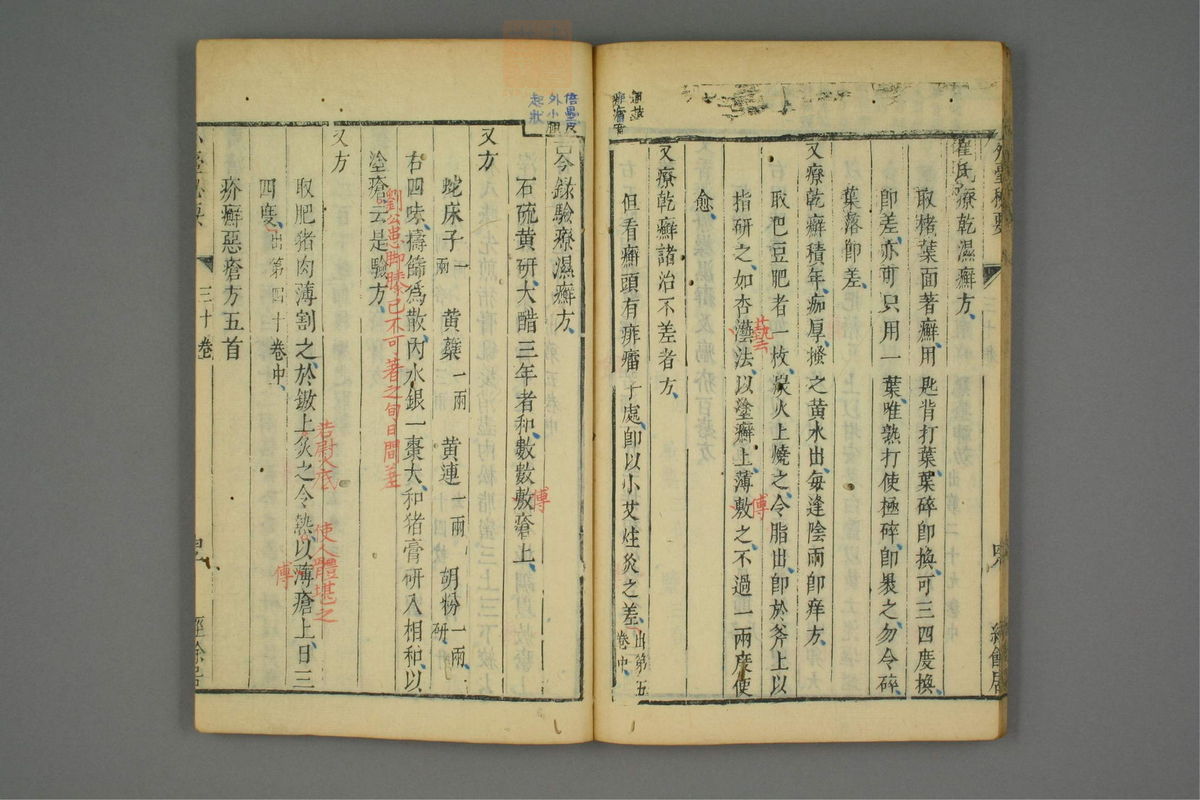 崔氏療乾濕癬方
取楮葉面著癬用匙背打葉葉碎卽換可三四度換
卽差亦可只用一葉唯熟打使極碎卽褁之勿令碎
葉落卽差
又療乾癬積年痂厚搔之黃水出每逢陰雨卽痒方
取巴豆肥者一枚炭火上燒之令脂出卽於斧上以
指研之如杏瀊法以塗癬上薄敷之不過一兩度便
藝
傅
愈
又療乾癬諸治不差者方
但看癬頭有痱㿔子處卽以小艾炷灸之差出第五卷中
古今錄驗療濕癬方
石硫黃研大醋三年者和數數敷瘡上
傅
又方
蛇床子一兩 黃蘗一兩 黃連一兩 胡粉一兩研
右四味擣篩爲散內水銀一棗大和猪膏研入相和以
塗瘡云是驗方
劉公患脚膝已不可著之旬日間差
又方
取肥猪肉薄割之於鏉上炙之令熱以薄瘡上日三
使人體堪之
傅
四度出第四十卷中
疥癬惡瘡方五首
三十卷